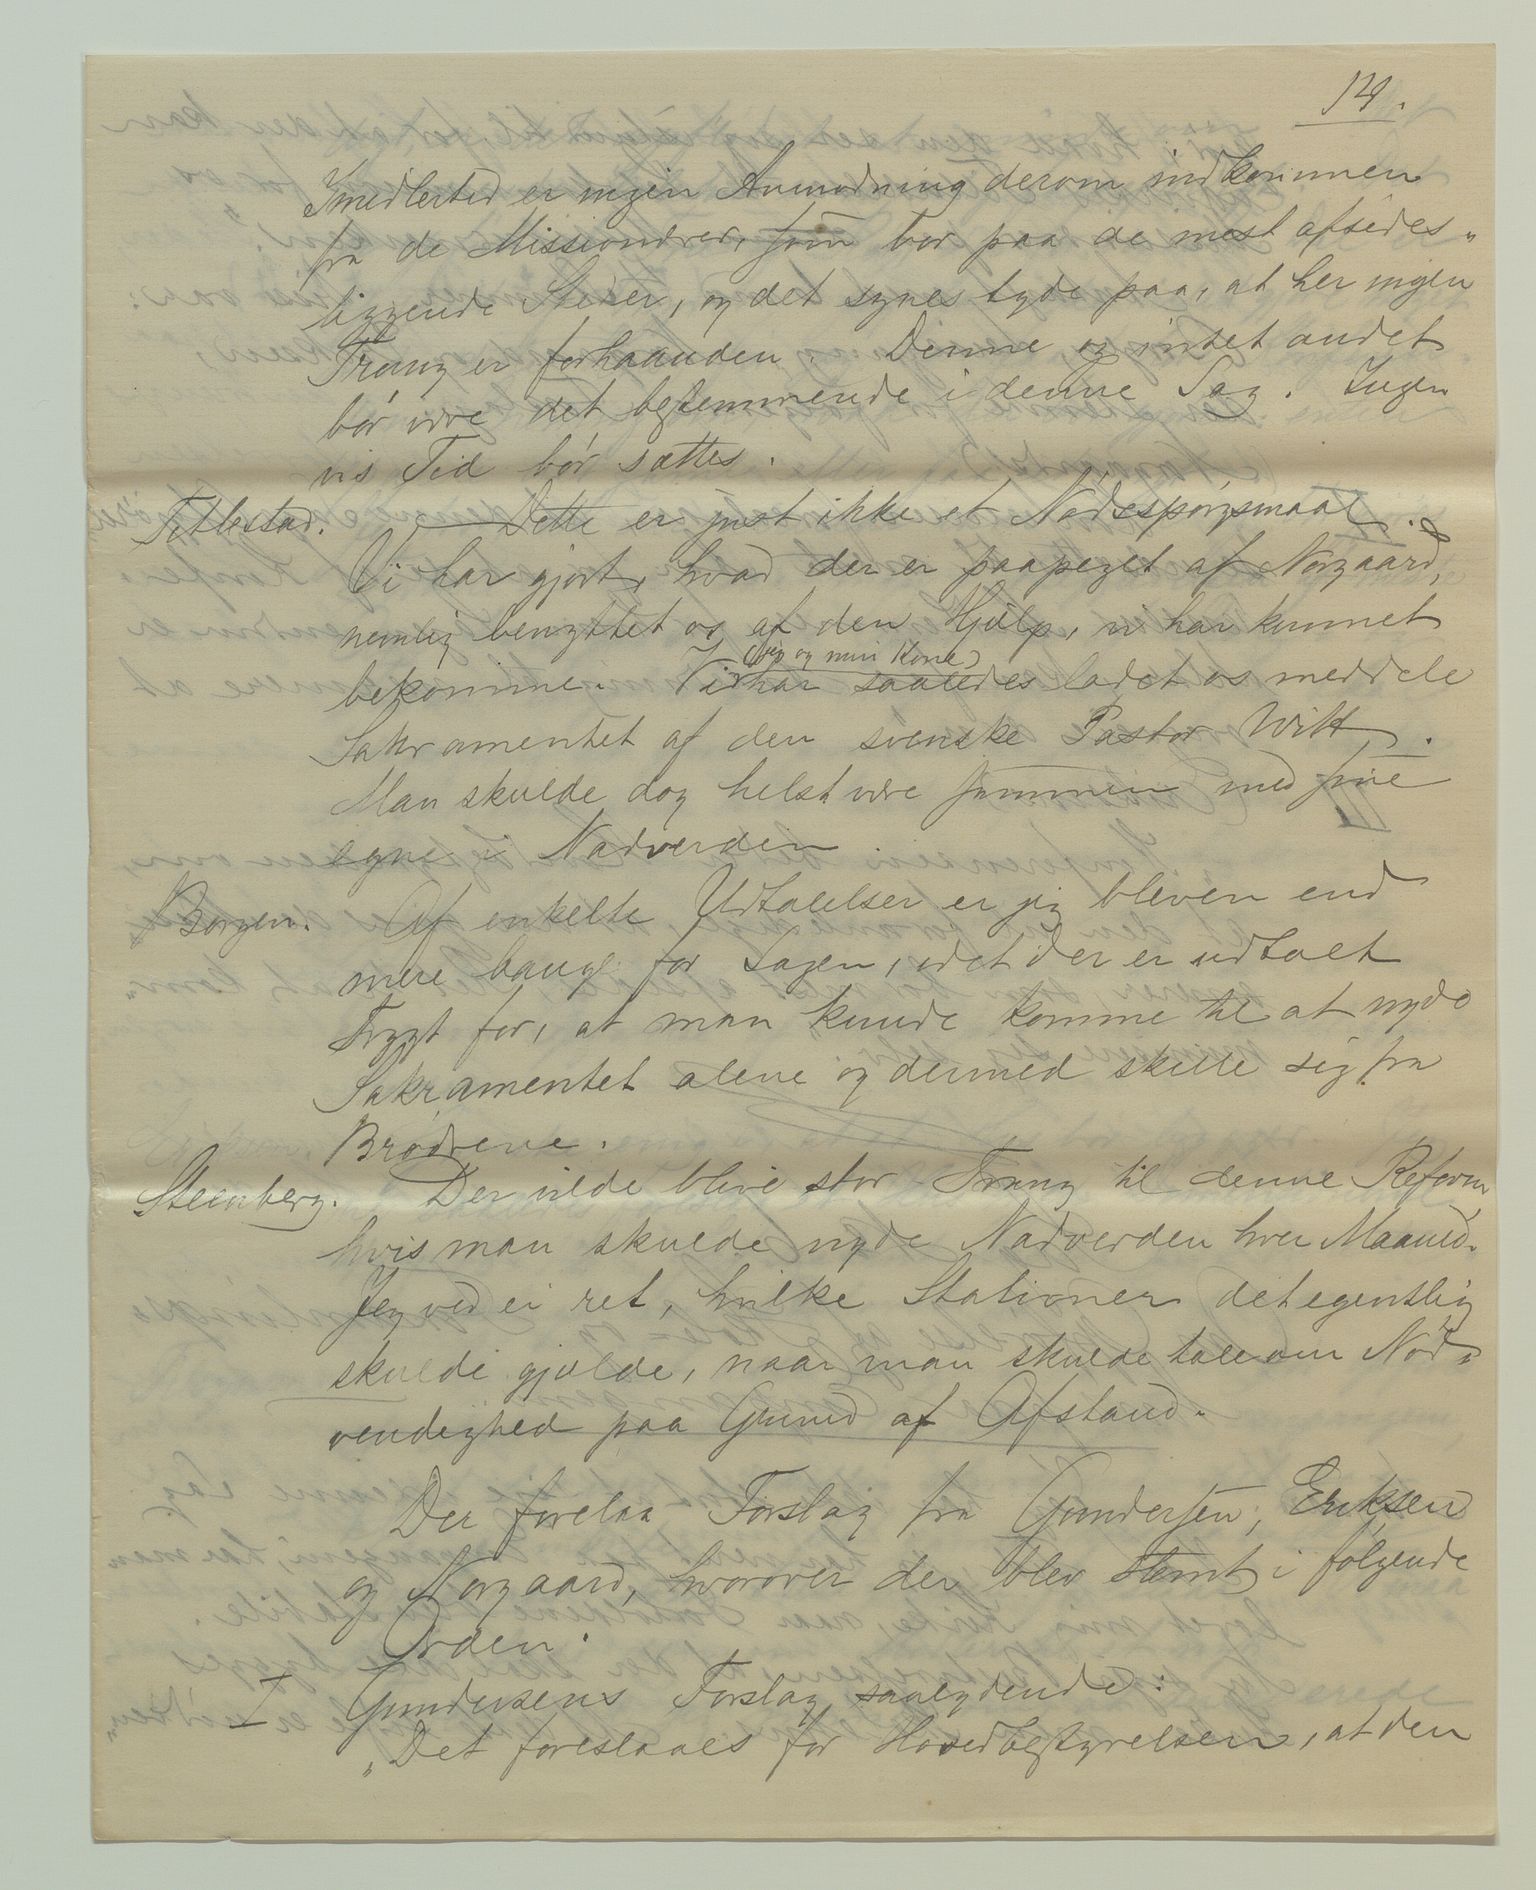 124.
Imidlertid er ingen Anmodning derom indkommen
fra de Missionærer, som bor paa de mest afsides
liggende Steder, og det synes tyde paa, at her ingen
Trang er forhaanden. Denne og intet andet
bør være det bestemmende i denne Sag. Ingen
vis Tid bør sættes.
Tetlestad. Dette er just ikke et Nødsspørgsmaal.
Vi har gjort, hvad der er paapeget af Norgaard,
nemlig benyttet os af den Hjælp, vi har kunnet
(jeg og min Kone)
bekomme. Vi har saaledes ladet os meddele
Sakramentet af den svenske Pastor Witt.
Man skulde dog helst være sammen med sine
egne i Nadverden.
Borgen. Af enkelte Udtalelser er jeg bleven end
mere bange for Sagen, idet der er udtalt
Frygt for, at man kunde komme til at nyde
Sakramentet alene og dermed skille sig fra
Brødrene.
Steenberg. Der vilde blive stor Trang til denne Reform,
hvis man skulde nyde Nadverden hver Maaned.
Jeg ved ei ret, hvilke Stationer det egentlig
skulde gjælde, naar man skulde tale om Nød-
vendighed paa Grund af Afstand.
Der forelaa Forslag fra Gundersen, Eriksen
og Norgaard, hvorover der blev stemt i følgende
Orden.
I Gundersens Forslag saalydende:
„Det foreslaaes for Hovedbestyrelsen, at den